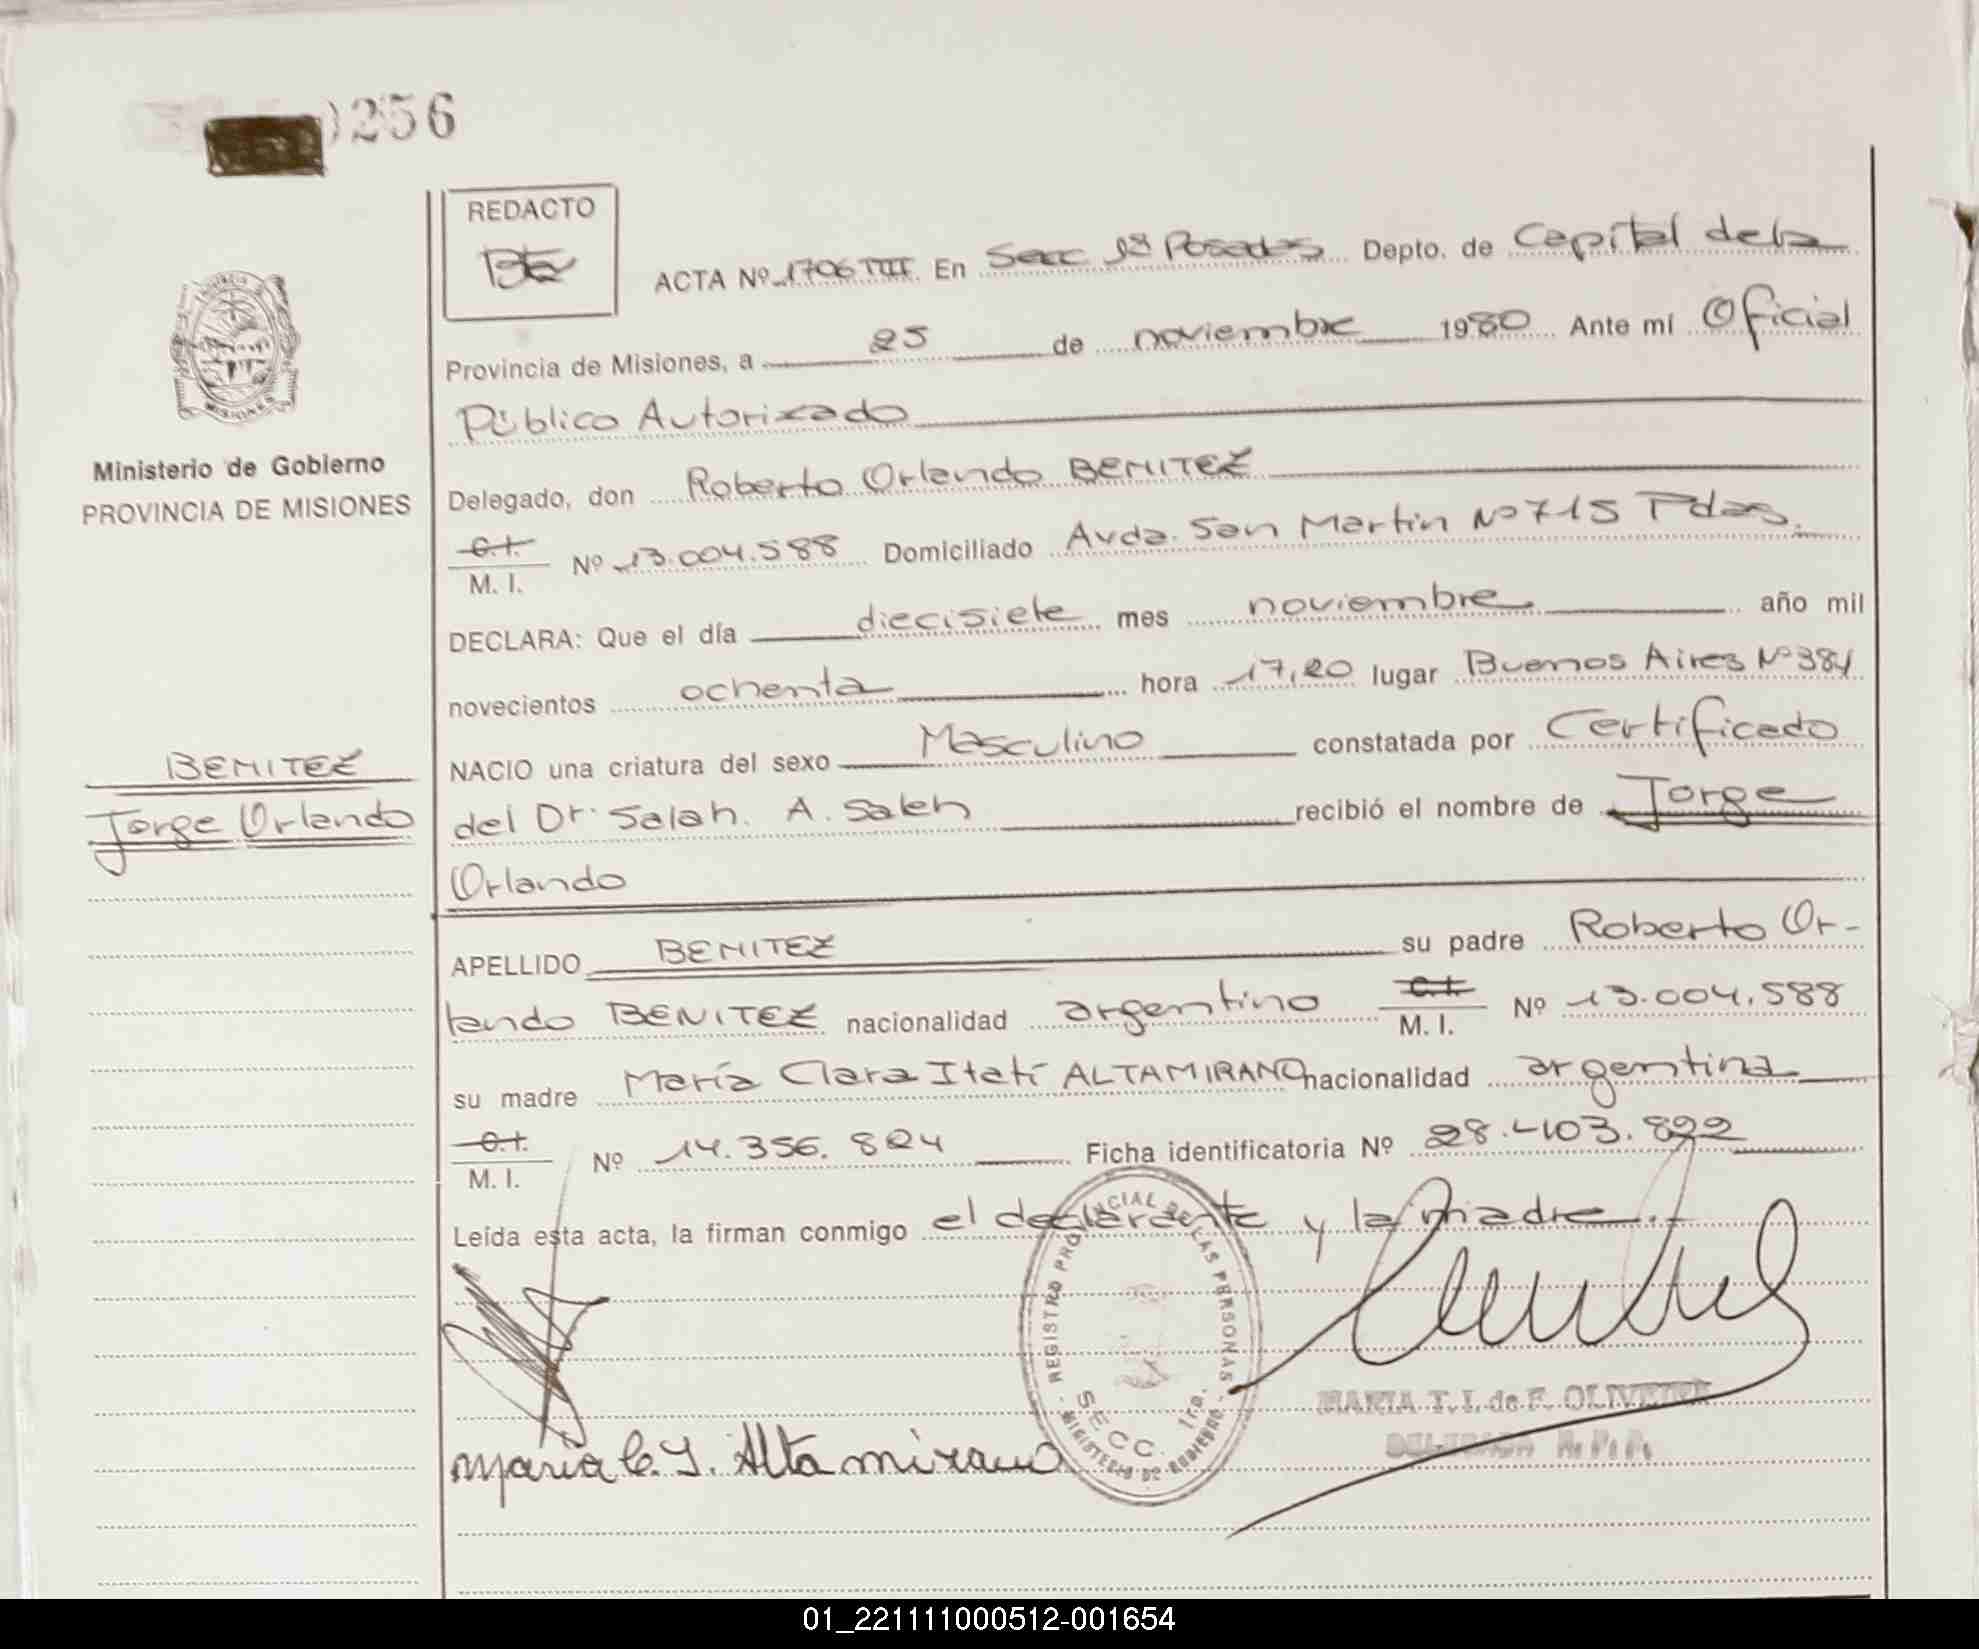 256
REDACTO
ACTA Nº 1706 TIII En Secc 1ª Posadas Depto. de Capital de la
Provincia de Misiones, a 25 de noviembre 1980 Ante mí Oficial
Público Autorizado
Ministerio de Gobierno
PROVINCIA DE MISIONES
Delegado, don Roberto Orlando BENITEZ
C.I.
M. I. Nº 13.004.588 Domiciliado Avda. San Martin Nº 715 Pdas.
DECLARA: Que el día diecisiete mes noviembre año mil
novecientos ochenta hora 17,20 lugar Buenos Aires Nº 384
NACIO una criatura del sexo Masculino constatada por Certificado
del Dr. Salah. A. Saleh recibió el nombre de Jorge
Orlando
BENITEZ
Jorge Orlando
APELLIDO BENITEZ su padre Roberto Or-
lando BENITEZ nacionalidad argentino C.I. M. I. Nº 13.004.588
su madre María Clara Itatí ALTAMIRANO nacionalidad argentina
C.I.
M. I. Nº 14.356.824 Ficha identificatoria Nº 28.403.822
Leída esta acta, la firman conmigo el declarante y la madre.
REGISTRO PROVINCIAL DE LAS PERSONAS
SECC. 1ra.
MINISTERIO DE GOBIERNO
MARIA T. I. de F. OLIVEIRA
DELEGADA R. P. P.
Maria C. I. Altamirano
01_221111000512-001654